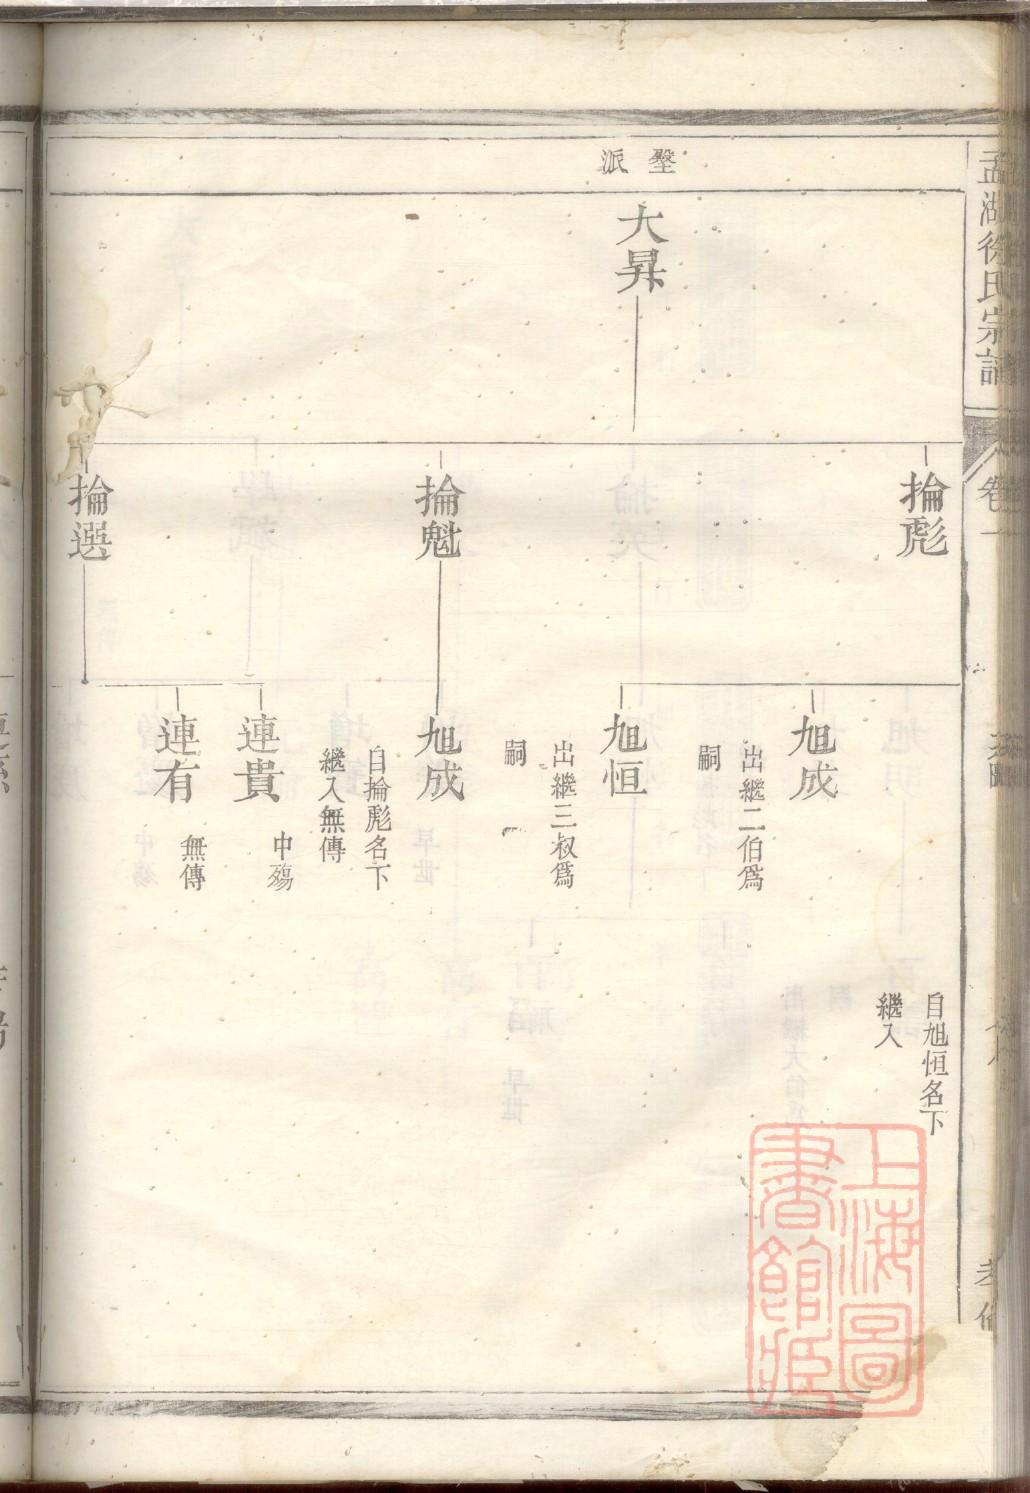 孟湖徐氏宗譜
卷一
壑派
大昇
掄彪
掄魁
掄選
旭成
出繼二伯爲
嗣
旭恒
出繼三叔爲
嗣
旭成
自掄彪名下
繼入無傳
連貴
中殤
連有
無傳
自旭恒名下
繼入
上海圖
書館藏